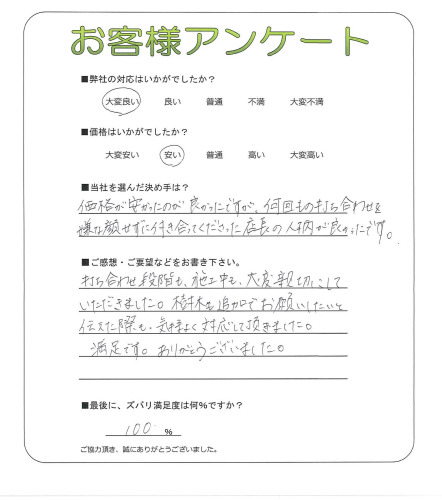 お客様アンケート
■弊社の対応はいかがでしたか?
大変良い 良い 普通 不満 大変不満
■価格はいかがでしたか?
大変安い 安い 普通 高い 大変高い
■当社を選んだ決め手は?
価格が安かったのが良かったですが、何回もの打ち合わせを
嫌な顔せずに付き合ってくださった店長の人柄が良かったです。
■ご感想・ご要望などをお書き下さい。
打ち合わせ段階も、施工中も、大変親切にして
いただきました。樹木も追加でお願いしたいと
伝えた際も、気持よく対応して頂きました。
満足です。ありがとうございました。
■最後に、ズバリ満足度は何%ですか?
100 %
ご協力頂き、誠にありがとうございました。